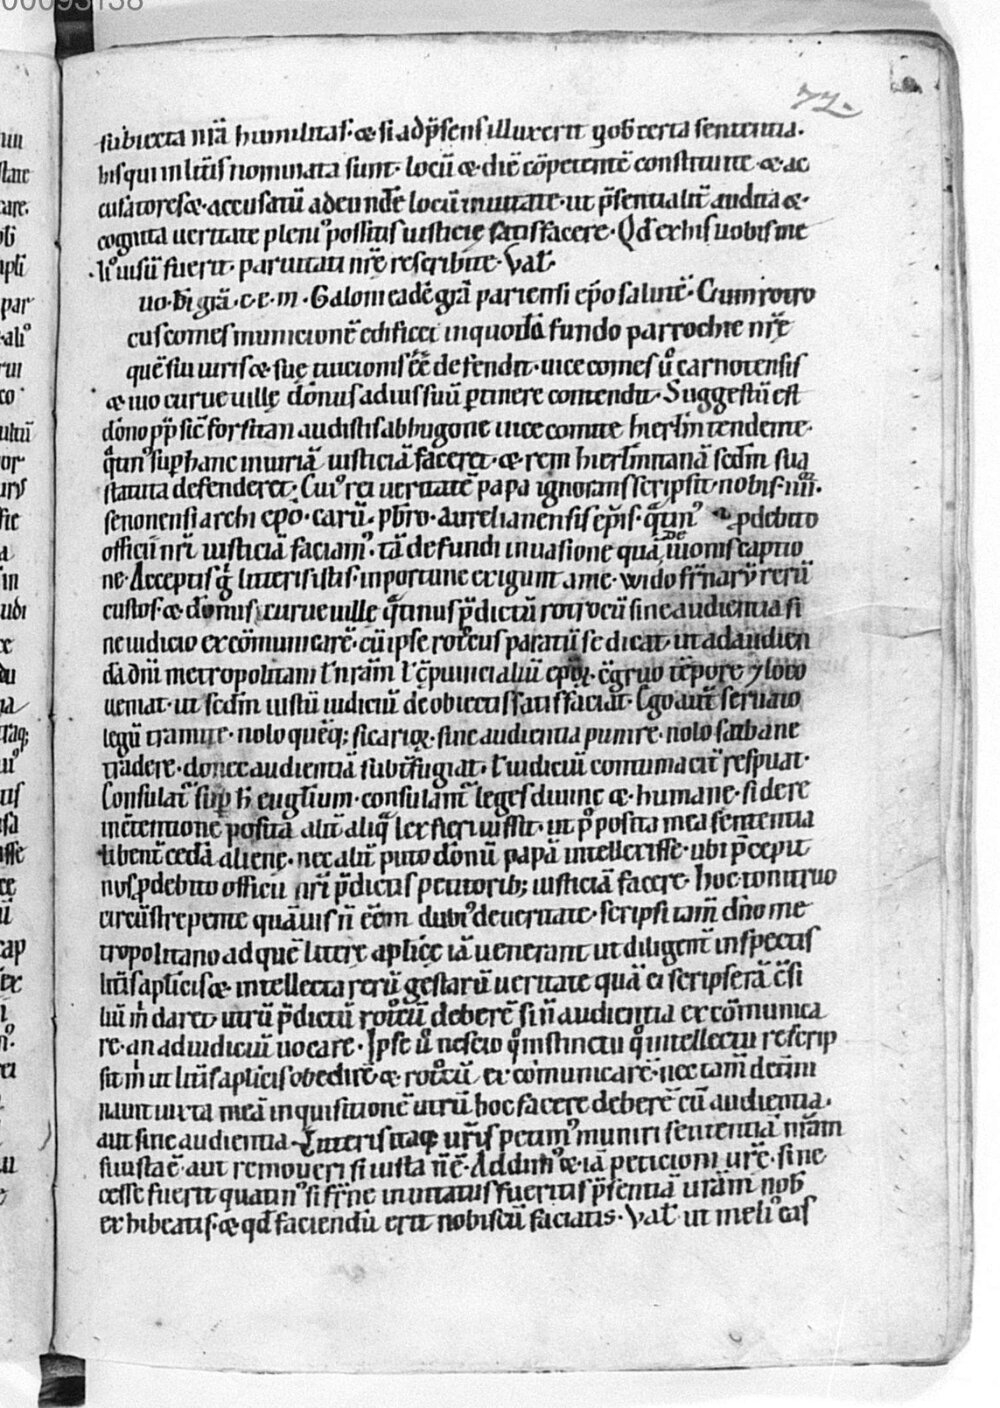 00093138
72.
subiecta nr̄a humilitas· & si adp̄sens illuxerit qob certa sententia.
his qui in litt̄is nominata sunt· locū & diē cōpetentē constituite & ac
cusatores &· accusatū adeundē locū inuitate· ut p̄sentialit̄ audita &·
cognita ueritate pleniꝰ possitis iusticię satisfacere· Qd̄ ex his uobis me
liꝰ uisū fuerit· paruitati nr̄ę rescribite· Val̄·
uo· di grā· c· e· m· Galoni eadē grā pariensi ep̄o salutē· Cum rotro
cus comes municionē edificet in quodā fundo parrochie nr̄ę
quē sui iuris & suę tuicionis ēē defendit· uicecomes ū carnotensis
& iuo curue uillę donus ad ius suū ꝑtinere contendit· Suggestū est
dōno pp̄ sic̄ forsitan audistis ab hugone uicecomite hierl̄m tendente·
q̄tinꝰ suꝑ hanc iniuriā iusticiā faceret· & rem hierl̄mitanā scd̄m sua
statuta defenderet· Cuiꝰ rei ueritatē papa ignorans scripsit nobis· iiii·
senonensi archiep̄o· carū· pb̄ro· aurelianensis ep̄is· q̄tinꝰ ꝓ debito
officii nr̄i iusticiā faciamꝰ· tā de fundi inuasione quā de iuonis captio
ne· Acceptis g̊ litteris istis· inportune exigunt a me· wido fr̄narȳ rerū
custos· & domus curue uillę q̄tinus p̄dictū rotrocū sine audientia si
ne iudicio excōmunicarē· cū ipse rotrocus paratū se dicat· ut ad audien
dā dn̄i metropolitani l̄ nr̄am l̄ cōprouincialiū ep̄oꝝ· cōgruo tēpore ⁊ loco
ueniat· ut scd̄m iustū iudiciū de obiectis satisfaciat· Ego aut̄ seruato
legū tramite· nolo quēq; sicarioꝝ· sine audientia punire· nolo sathane
tradere· donec audientiā subt̄fugiat· l̄ iudiciū contumacit̄ respuat·
Consulat̄ suꝑ h̄ eugl̄ium· consulant̄ leges diuine &· humane· si de re
in cōtentione posita alit̄ aliq̄ lex fieri iussit· ut p̄posita mea sententia
libent̄ cedā alienę· nec alit̄ puto donū papā intellexisse· ubi p̄cepit
nos ꝓ debito officii nr̄i p̄dictis petitorib; iusticiā facere· hoc tonitruo
circūstrepente quāuis n̄ eēm dubiꝰ de ueritate· scripsi tam̄ dn̄o me
tropolitano ad quē litterę aplīcę iā uenerant ut diligent̄ inspectis
litt̄is aplicis & intellecta rerū gestarū ueritate quā ei scripserā cōsi
liū m̊ daret utrū p̄dictū rotrocū deberē sine audientia excōmunica
re· an ad iudiciū uocare· Ipse ū nescio q̊ instinctu q̊ intellectu rescrip
sit m̊ ut litt̄is aplicis obedirē· & rotrocū excōmunicarē· nec tam̄ det̄mi
nauit iuxta meā inquisitionē utrū hoc facere deberē cū audientia·
aut sine audientia· Litteris itaq; ur̄is petimꝰ muniri sententiā nr̄am
si iusta ē· aut remoueri si iusta n̄ ē· Addimꝰ & iā peticioni ur̄ę· sine
cesse fuerit quatinꝰ si fr̄ne inuitatus fueritis p̄sentiā ur̄am nob
exhibeatis· & qd̄ faciendū erit nobiscū faciatis· Val̄· ut meliꝰ eas